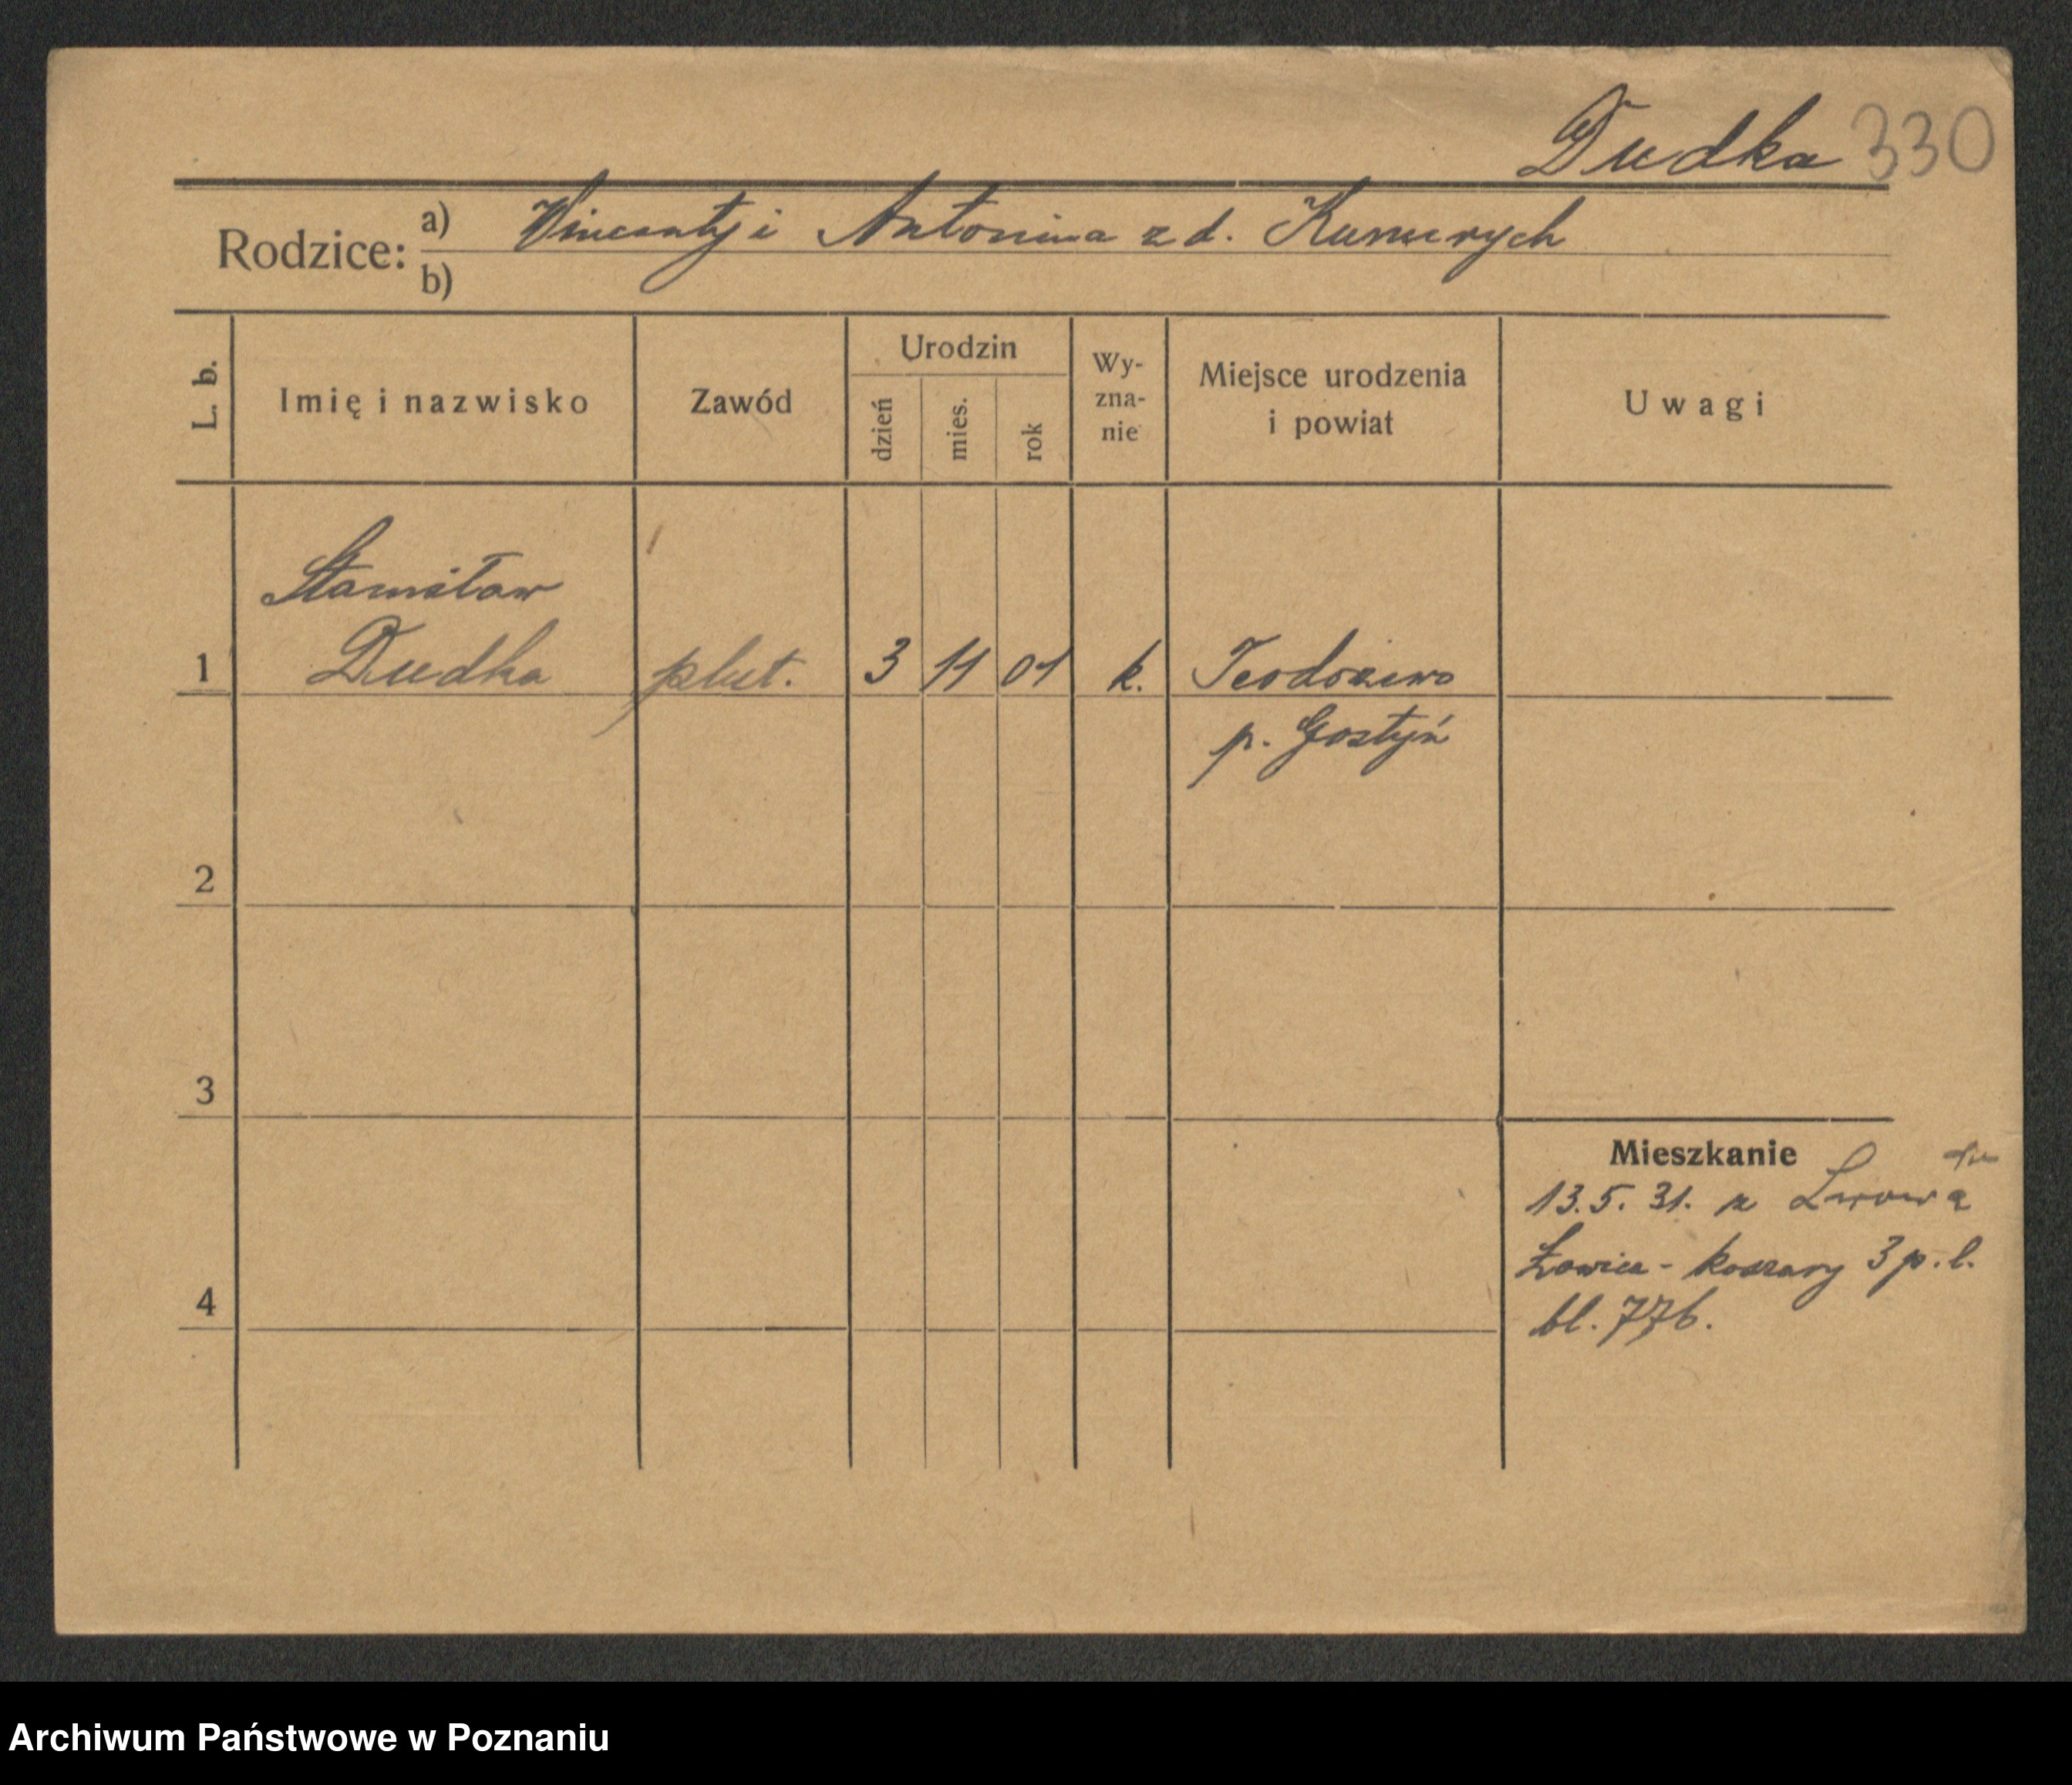 Dudka 330
Rodzice: a) Wincenty i Antonina z d.
b)
L. b.
Imię i nazwisko
Zawód
Urodzin
dzień
mies.
rok
Wy-
zna-
nie
Miejsce urodzenia
i powiat
Uwagi
Stanisław
1 Dudka plut. 3 11 01 k. Teodozewo
p. Gostyń
2
3
Mieszkanie
13.5.31. z Lwowa
Ławica - koszary 3 p. l.
4
bl. 77b.
Archiwum Państwowe w Poznaniu